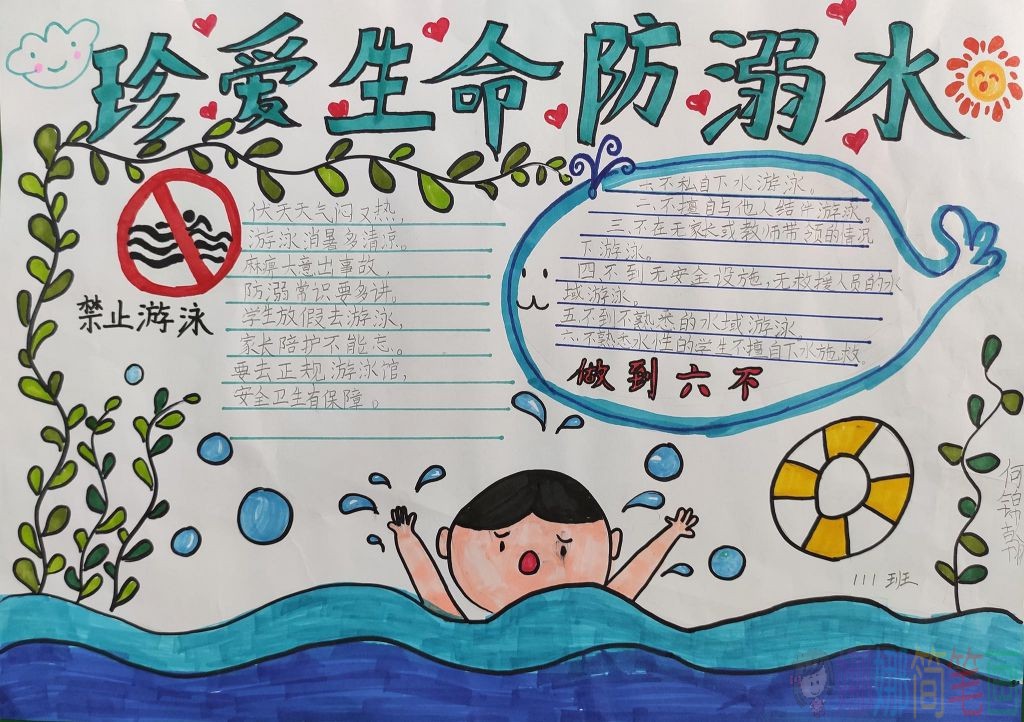 珍爱生命防溺水
禁止游泳
伏天天气闷又热,
游泳消暑多清凉。
麻痹大意出事故,
防溺常识要多讲。
学生放假去游泳,
家长陪护不能忘。
要去正规游泳馆,
安全卫生有保障。
一.不私自下水游泳。
二.不擅自与他人结伴游泳。
三.不在无家长或教师带领的情况
下游泳。
四.不到无安全设施,无救援人员的水
域游泳。
五.不到不熟悉的水域游泳
六.不熟悉水性的学生不擅自下水施救.
做到六不
111班
何锦
简笔画